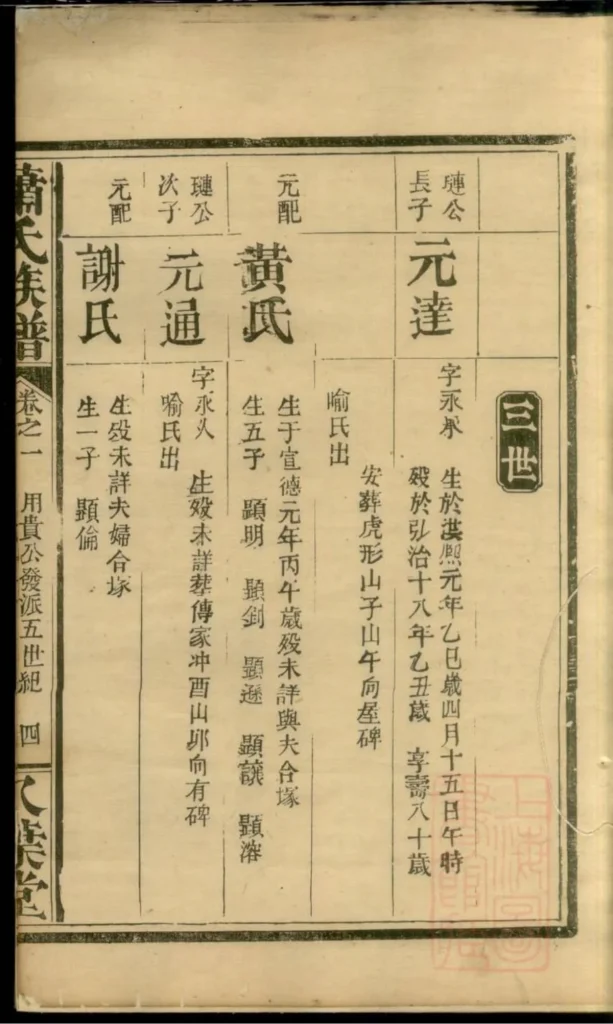 三世
璉公
長子
元達
字永承 生於洪熙元年乙巳歲四月十五日午時
殁於弘治十八年乙丑歲 享壽八十歲
安葬虎形山子山午向竪碑
喻氏出
元配
黃氏
生于宣德元年丙午歲殁未詳與夫合塚
生五子 顯明 顯釗 顯遜 顯讓 顯溶
璉公
次子
元通
字永久 生殁未詳塟傳家冲酉山卯向有碑
喻氏出
元配
謝氏
生殁未詳夫婦合塚
生一子 顯倫
蕭氏族譜
卷之一 用貴公發派五世紀 四
八葉堂
上海圖書館藏